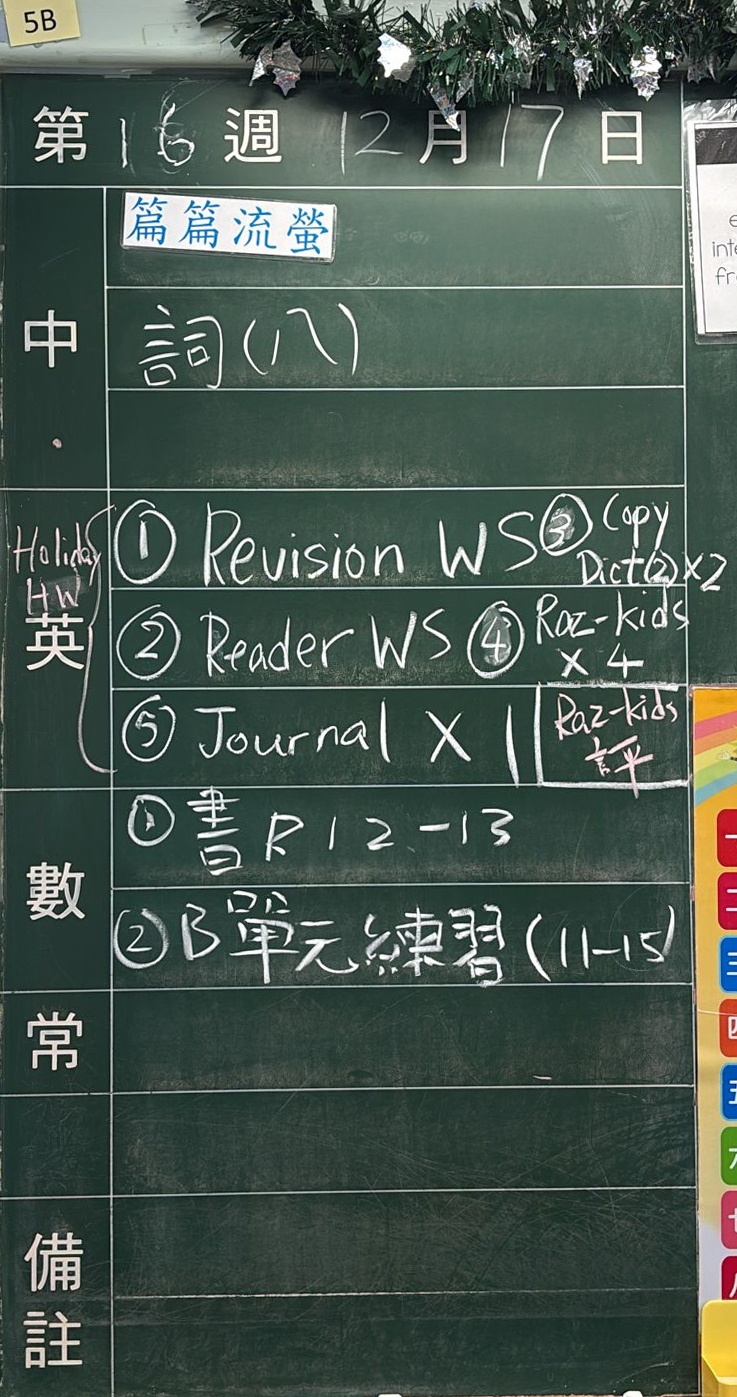 5B
第16週 12月17日
中
篇篇流螢
詞(八)
英
Holiday
HW
① Revision WS ③ Copy
Dict(2)×2
② Reader WS ④ Raz-kids
× 4
⑤ Journal × 1
Raz-kids
評
數
① 書 P 12-13
② B單元練習 (11-15)
常
備
註
inte
fr
一
二
三
四
五